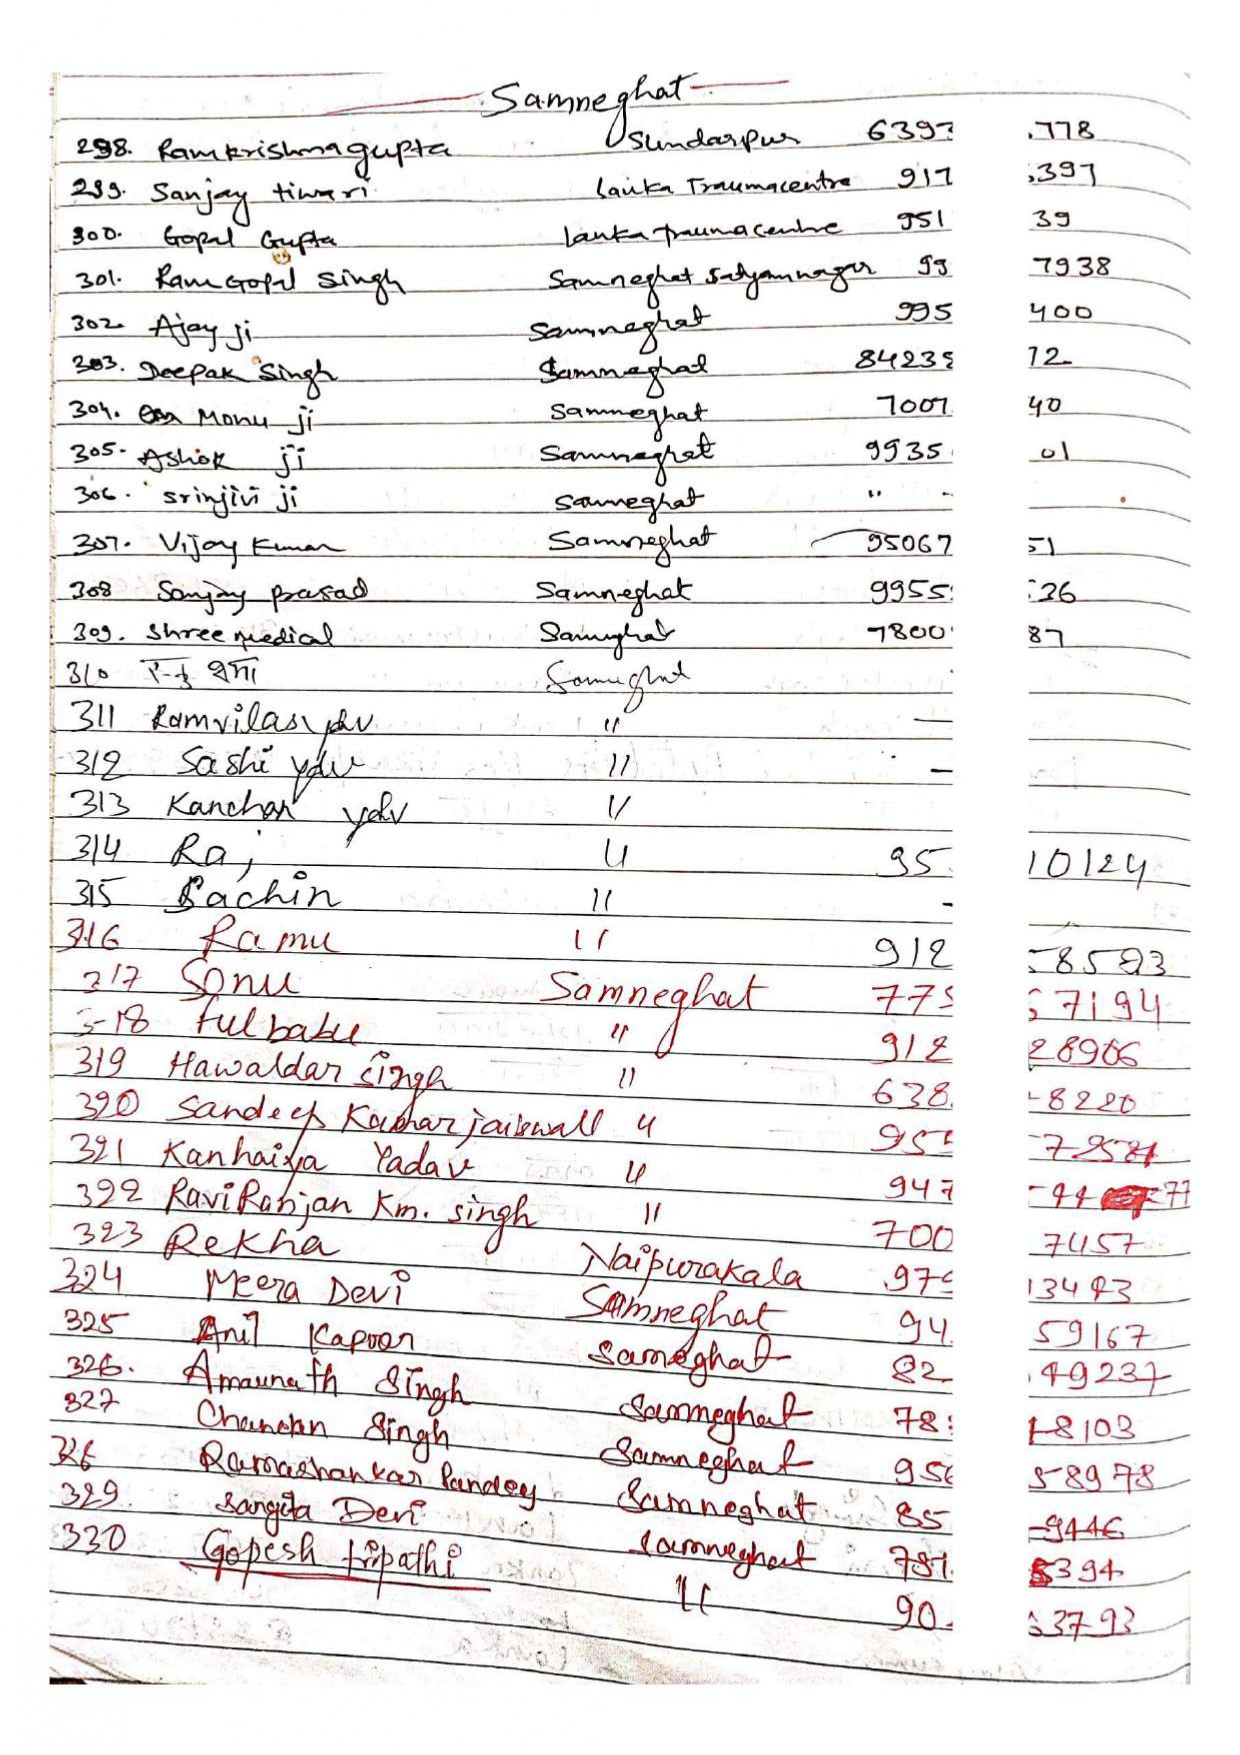 Samneghat
298. Ramkrishna gupta Sundarpur 6393 778
299. Sanjay tiwari Lanka Traumacentre 917 397
300. Gopal Gupta Lanka traumacentre 951 39
301. Ram Gopal Singh Samneghat Satyamnagar 99 7938
302. Ajay ji Samneghat 995 400
303. Deepak Singh Samneghat 84235 72
304. Monu ji Samneghat 7007 40
305. Ashok ji Samneghat 9935 01
306. srinjivi ji Samneghat " -
307. Vijay Kumar Samneghat 95067 51
308 Sanjay prasad Samneghat 9955 36
309. Shree medical Samneghat 7800 87
310 Samneghat
311 Ramvilas ydv " —
312 Sashi ydv " -
313 Kanchan ydv "
314 Raj " 95 10124
315 Sachin " -
316 Ramu " 912 8583
317 Sonu Samneghat 775 7194
318 fulbabu " 912 28906
319 Hawaldar singh " 638 8220
320 Sandeep Kumar jaiswall " 955
321 Kanhaiya Yadav " 947 77
322 Ravi Ranjan Km. singh " 700 7457
323 Rekha Naipurakala 979 13493
324 Meera Devi Samneghat 94 59167
325 Anil Kapoor Sameghat 82 49237
326. Amarnath Singh Samneghat 78 8103
327 Chandan Singh Samneghat 956 58978
Ramashankar Pandey Samneghat 85 9446
329 Sangita Devi Samneghat 787 5394
330 Gopesh tripathi " 90 33793